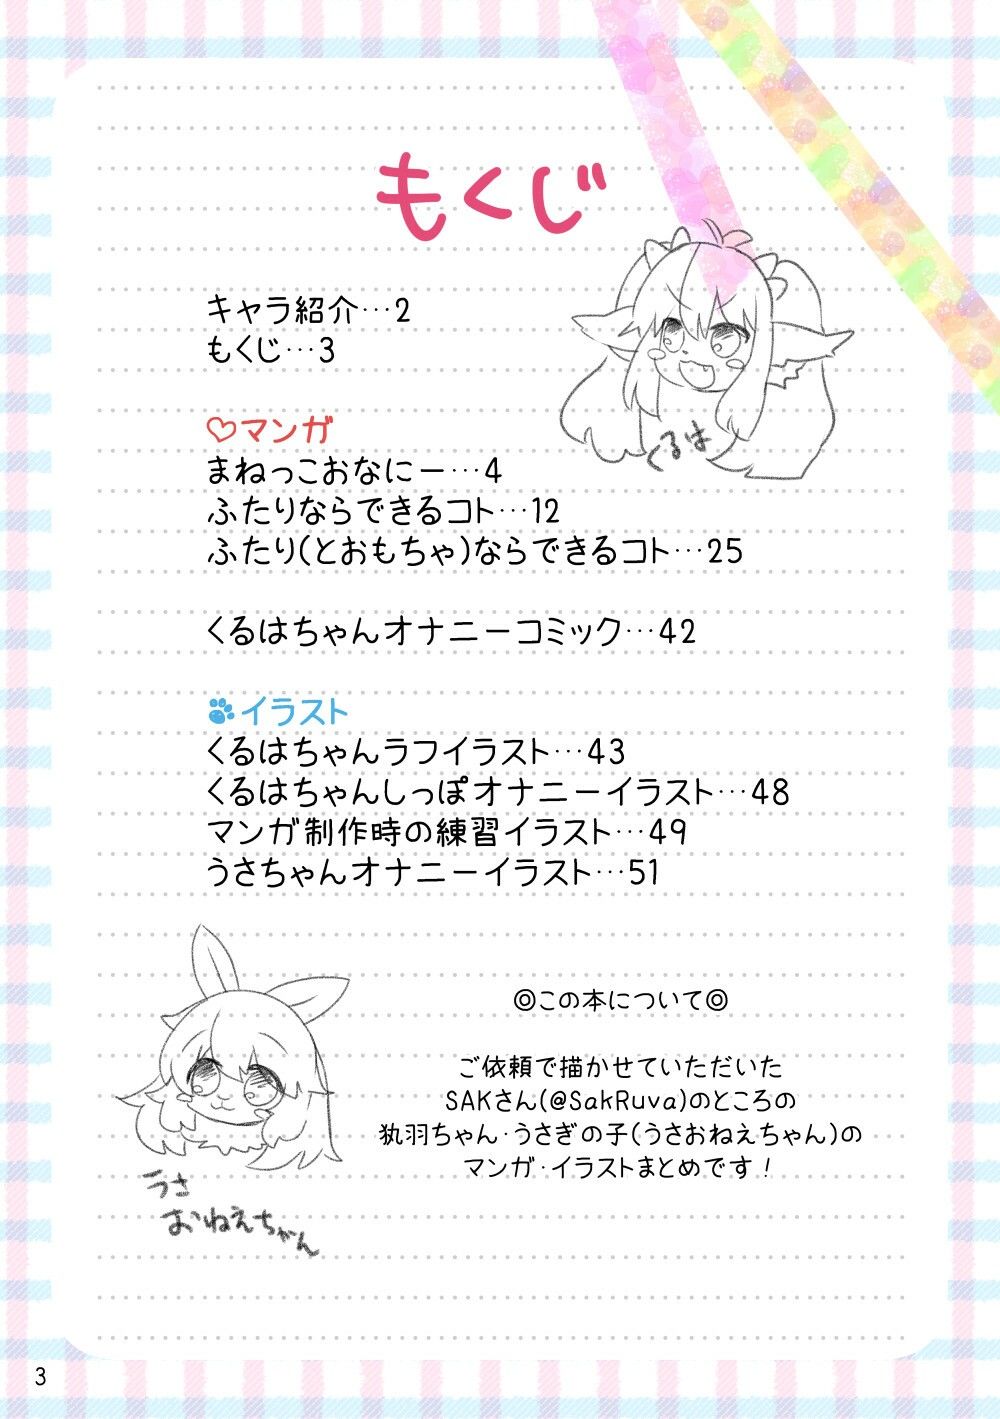 もくじ
キャラ紹介…2
もくじ…3
♡マンガ
まねっこおなにー…4
ふたりならできるコト…12
ふたり(とおもちゃ)ならできるコト…25
くるは
くるはちゃんオナニーコミック…42
イラスト
くるはちゃんラフイラスト…43
くるはちゃんしっぽオナニーイラスト…48
マンガ制作時の練習イラスト…49
うさちゃんオナニーイラスト…51
◎この本について◎
ご依頼で描かせていただいた
SAKさん(@SakRuva)のところの
犱羽ちゃん・うさぎの子(うさおねえちゃん)の
マンガ・イラストまとめです！
うさ
おねえちゃん
3